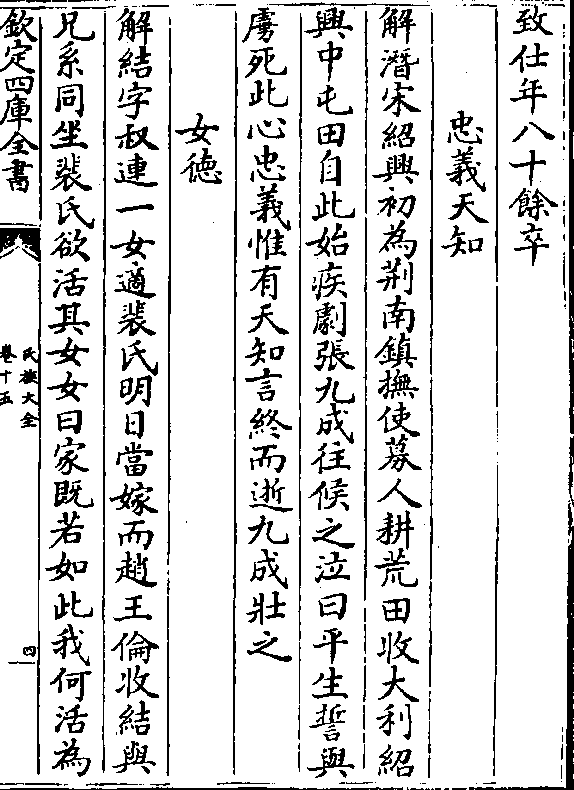 致仕年八十餘卒
忠義天知
解潛宋紹興初為荆南鎮撫使募人耕荒田收大利紹
興中屯田自此始疾劇張九成往候之泣曰平生誓與
虜死此心忠義惟有天知言終而逝九成壯之
女徳
解結字叔連一女適裴氏明日當嫁而趙王倫收結與
兄系同坐裴氏欲活其女女曰家既若如此我何活為
欽定四庫全書
氏族大全
卷十五
四